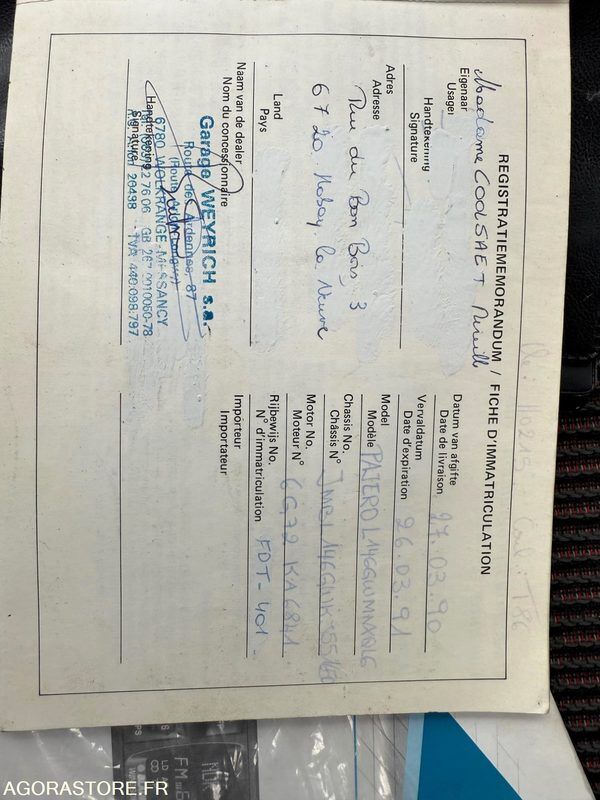 Clé : 110215 Coul : T86
REGISTRATIEMEMORANDUM / FICHE D'IMMATRICULATION
Madame COOLSAET
Eigenaar
Usager
Handtekening
Signature
Adres
Adresse
Rue du Bon Bois, 3
6720 Habay la Neuve
Land
Pays
Naam van de dealer
Nom du concessionnaire
Garage WEYRICH s.a.
Route des Ardennes, 87
6780 WOLKRANGE-MESSANCY
Handtekening
Signature
TVA 440.098.797
Datum van afgifte
Date de livraison 27.03.90
Vervaldatum
Date d'expiration 26.03.91
Model
Modèle PAJERO L146GWMNXQL6
Chassis No.
Châssis N°
Motor No.
Moteur N° 6G72 KA6841
Rijbewijs No.
N° d'immatriculation FDT-401
Importeur
Importateur
FM
AGORASTORE.FR